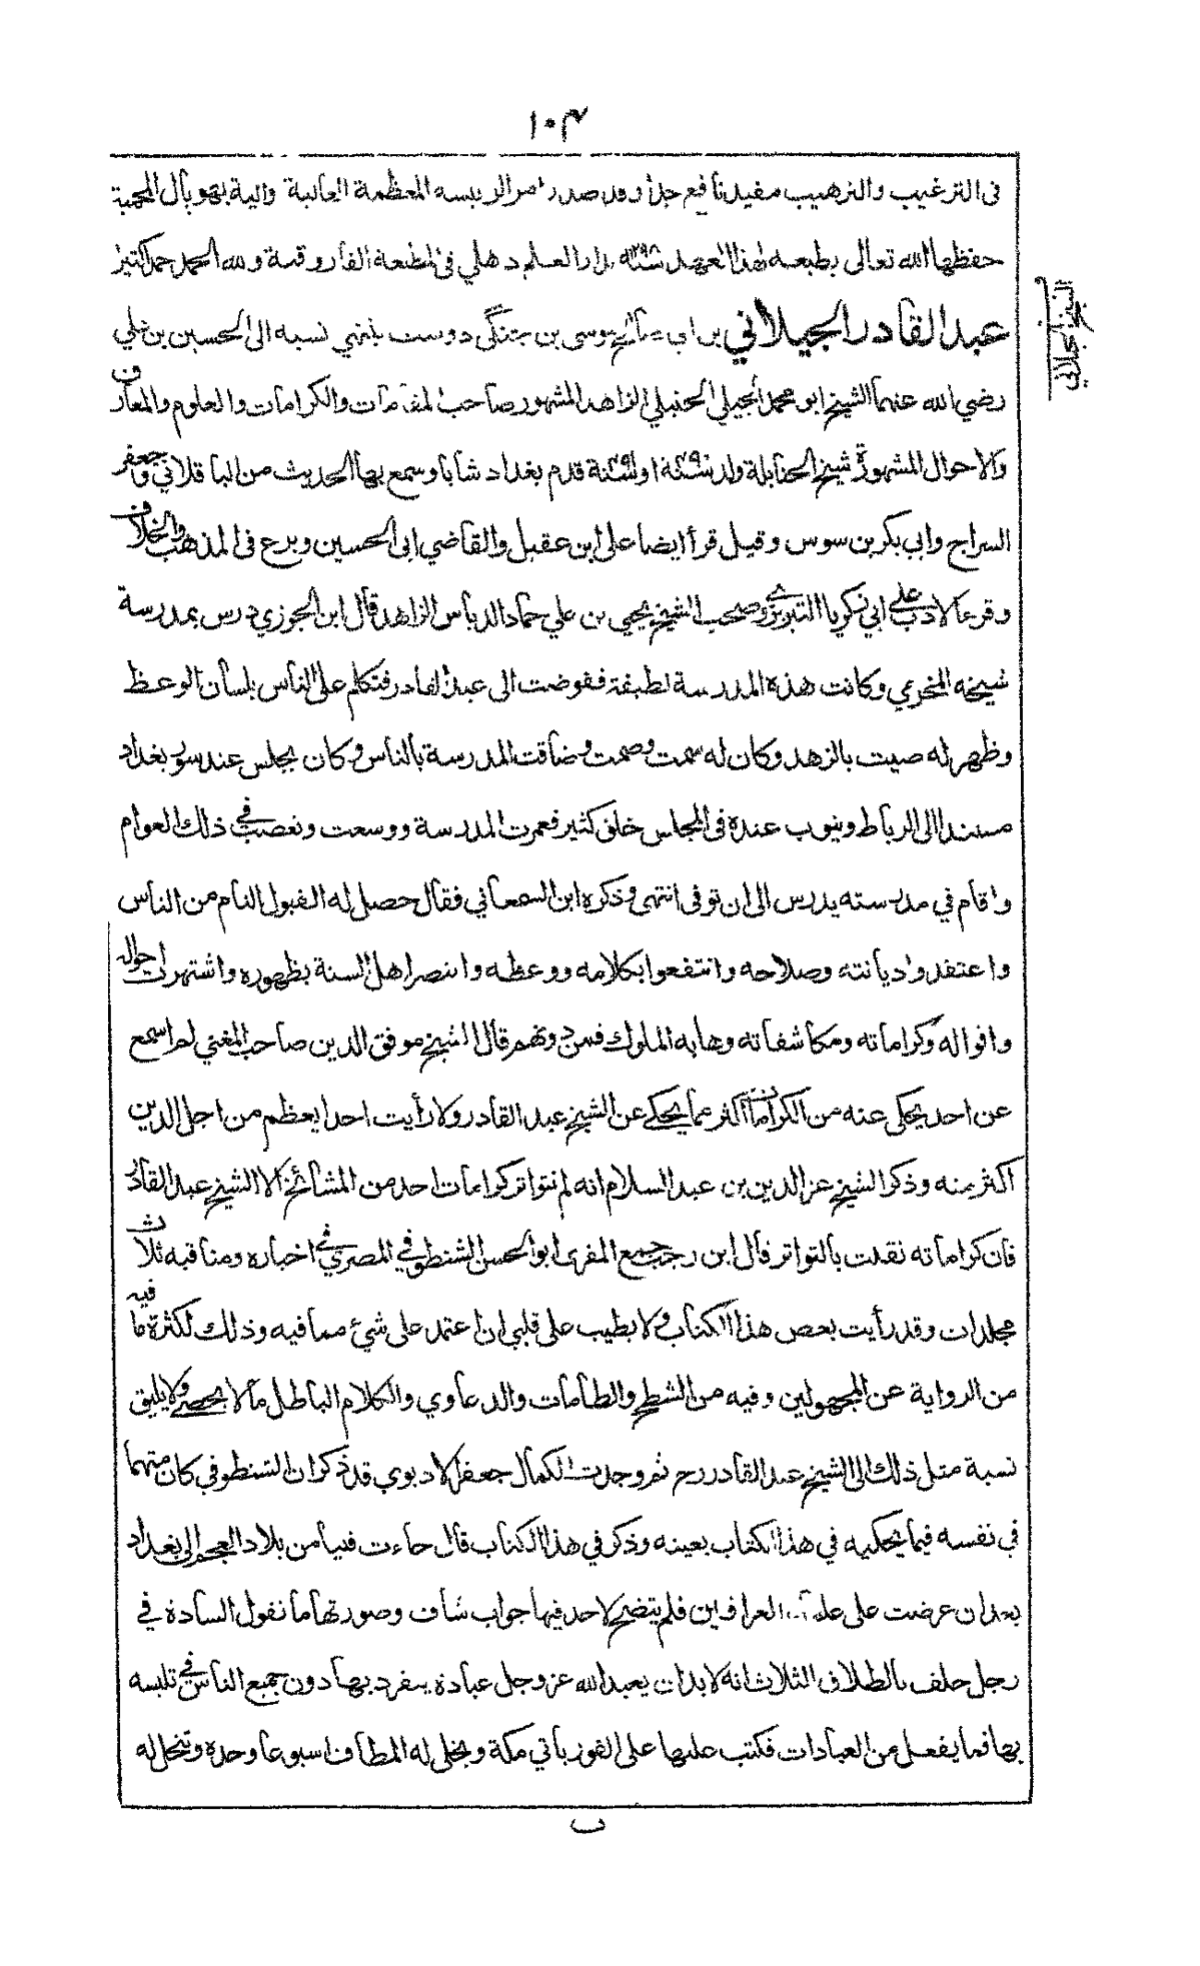 ١٠٣
فى الترغيب والترهيب مفيد نافع جدا وقد صدر امر الرئيسه المعظمة العالية والية بهوپال المحمية
حفظها الله تعالى بطبعه لهذا العهد سنه ١٢٩٨ بدار العلم دهلي في المطبعة الفاروقية ولله الحمد حمدا كثيرا
عبد القادر الجيلاني بن ابي صالح موسى بن جنگي دوست ينتهي نسبه الى الحسين بن علي
رضي الله عنهما الشيخ ابو محمد الجيلي الحنبلي الزاهد المشهور صاحب المقامات والكرامات والعلوم والمعارف
والاحوال المشهورة شيخ الحنابلة ولد سنة او سنة قدم بغداد شابا وسمع بها الحديث من الباقلاني وجعفر
السراج وابي بكر بن سوس وقيل قرأ ايضا على ابن عقيل والقاضي ابي الحسين وبرع في المذهب والخلاف
وقرء الادب على ابي زكريا التبريزي وصحب الشيخ يحيى بن علي حماد الدباس الزاهد قال ابن الجوزي درس بمدرسة
شيخه المخرمي وكانت هذه المدرسة لطيفة ففوضت الى عبد القادر فتكلم على الناس بلسان الوعظ
وظهر له صيت بالزهد وكان له سمت وصمت وضاقت المدرسة بالناس وكان يجلس عند سور بغداد
مستندا الى الرباط ويتوب عنده فى المجلس خلق كثير فعمرت المدرسة ووسعت وتعصب في ذلك العوام
واقام في مدرسته يدرس الى ان توفى انتهى وذكره ابن السمعاني فقال حصل له القبول التام من الناس
واعتقدوا ديانته وصلاحه وانتفعوا بكلامه ووعظه وانتصر اهل السنة بظهوره واشتهرت احواله
واقواله وكراماته ومكاشفاته وهابه الملوك فمن دونهم قال الشيخ موفق الدين صاحب المغني لم اسمع
عن احد يحكى عنه من الكرامات اكثر مما يحكى عن الشيخ عبد القادر ولا رأيت احدا يعظم من اجل الدين
اكثر منه وذكر الشيخ عز الدين بن عبد السلام انه لم تتواتر كرامات احد من المشائخ الا الشيخ عبد القادر
فان كراماته نقلت بالتواتر قال ابن رجب جمع المقرى ابو الحسن الشنطوفي المصري في اخباره ومناقبه ثلاث
مجلدات وقد رأيت بعض هذا الكتاب ولا يطيب على قلبي ان اعتمد على شيئ مما فيه وذلك لكثرة ما فيه
من الرواية عن المجهولين وفيه من الشطح والطامات والدعاوي والكلام الباطل ما لا يحصى ولا يليق
نسبة مثل ذلك الى الشيخ عبد القادر رح ثم وجدت الكمال جعفر الادبوي قد ذكر ان الشنطوفي كان متهما
في نفسه فيما يحكيه في هذا الكتاب بعينه وذكر في هذا الكتاب قال جاءت فتيا من بلاد العجم الى بغداد
بعد ان عرضت على علماء العراقين فلم يتضح لاحد فيها جواب شاف وصورتها ما نقول السادة في
رجل حلف بالطلاق الثلاث انه لا بد ان يعبد الله عز وجل عبادة ينفرد بها دون جميع الناس في تلبسه
بها فما يفعل من العبادات فكتب عليها على الفور ياتي مكة ويخلى له المطاف اسبوعا وحده وتنحل له